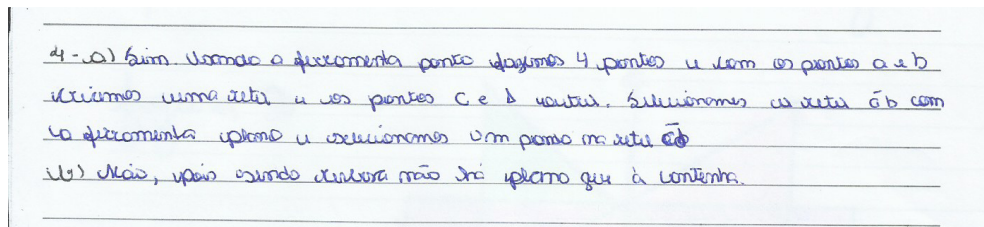 4-a) Sim. Usando a ferramenta ponto fazemos 4 pontos e com os pontos a e b
criamos uma reta e os pontos C e D outra. Selecionamos a reta ab com
a ferramenta plano e selecionamos um ponto na reta cb
b) Não, pois sendo reversa não há plano que à contenha.